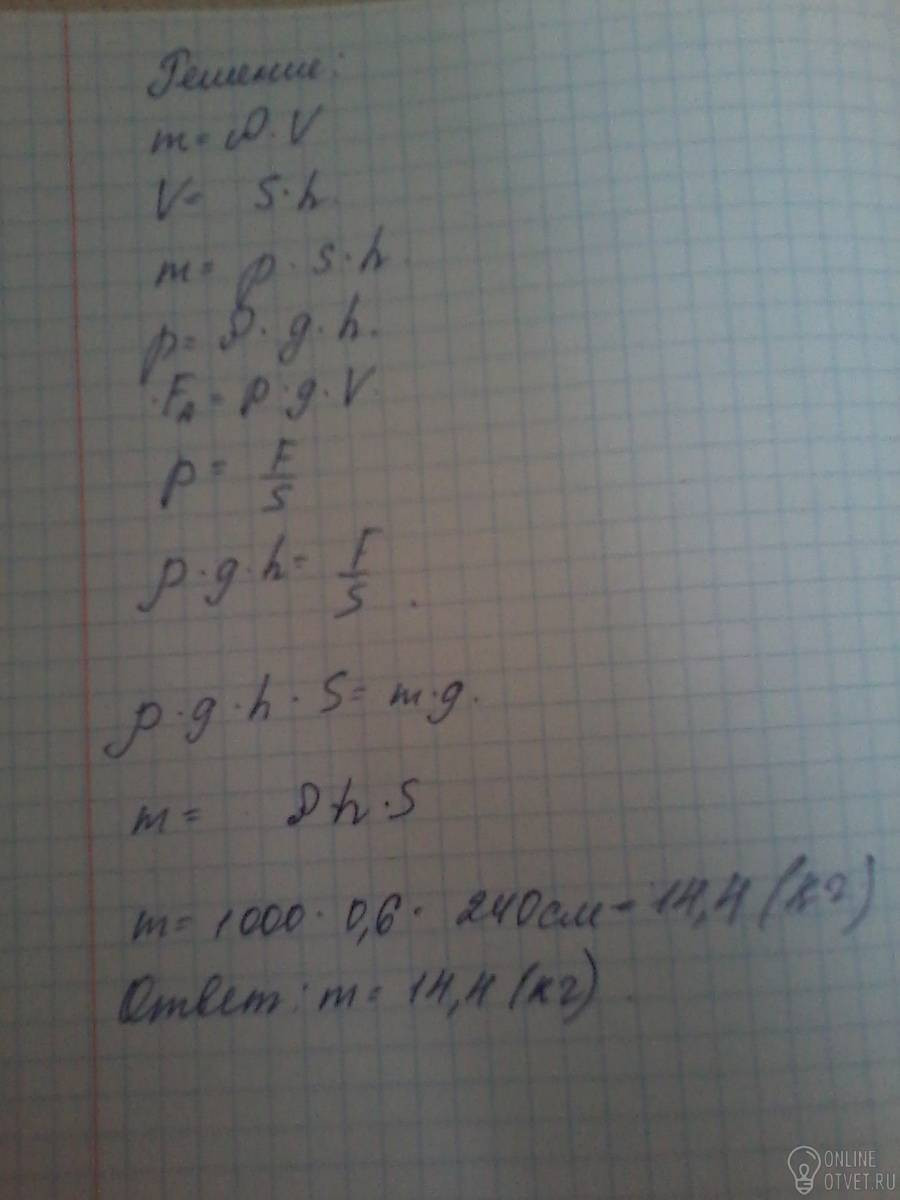 Решение:
m = ρ · V
V = S · h
m = ρ · s · h
p = ρ · g · h.
F_A = ρ · g · V
p = F/S
ρ · g · h = F/S.
ρ · g · h · S = m · g.
m = ρ h · S
m = 1000 · 0,6 · 240см = 14,4 (кг)
Ответ: m = 14,4 (кг)
ONLINE
OTVET.RU